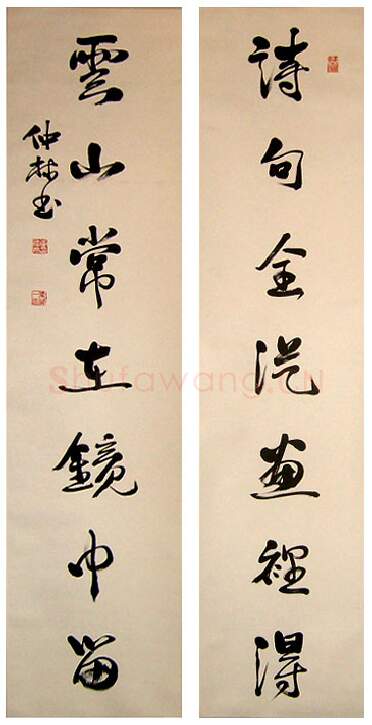 詩句全從畫裡得
雲山常在鏡中留
仲林書
Shufawang.cn